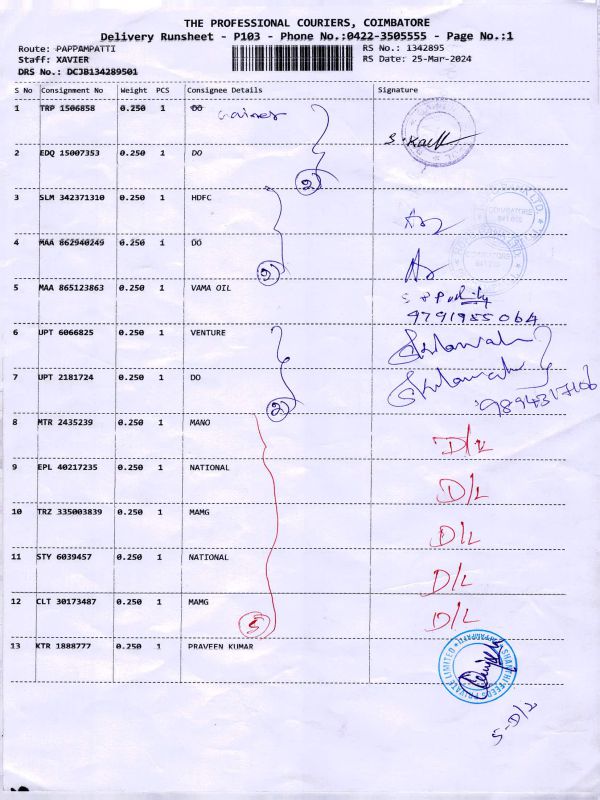 THE PROFESSIONAL COURIERS, COIMBATORE
Delivery Runsheet - P103 - Phone No.:0422-3505555 - Page No.:1
Route: PAPPAMPATTI RS No.: 1342895
Staff: XAVIER RS Date: 25-Mar-2024
DRS No.: DCJB134289501
S No Consignment No Weight PCS Consignee Details Signature
1 TRP 1506858 0.250 1 DO
2 EDQ 15007353 0.250 1 DO
2
3 SLM 342371310 0.250 1 HDFC
4 MAA 862940249 0.250 1 DO
2
5 MAA 865123863 0.250 1 VAMA OIL
9791955064
6 UPT 6066825 0.250 1 VENTURE
7 UPT 2181724 0.250 1 DO
2
8 MTR 2435239 0.250 1 MANO D/L
9 EPL 40217235 0.250 1 NATIONAL D/L
10 TRZ 335003839 0.250 1 MAMG D/L
11 STY 6039457 0.250 1 NATIONAL D/L
12 CLT 30173487 0.250 1 MAMG D/L
5
13 KTR 1888777 0.250 1 PRAVEEN KUMAR
SHANTHI FEEDS PRIVATE LIMITED
5-D/L